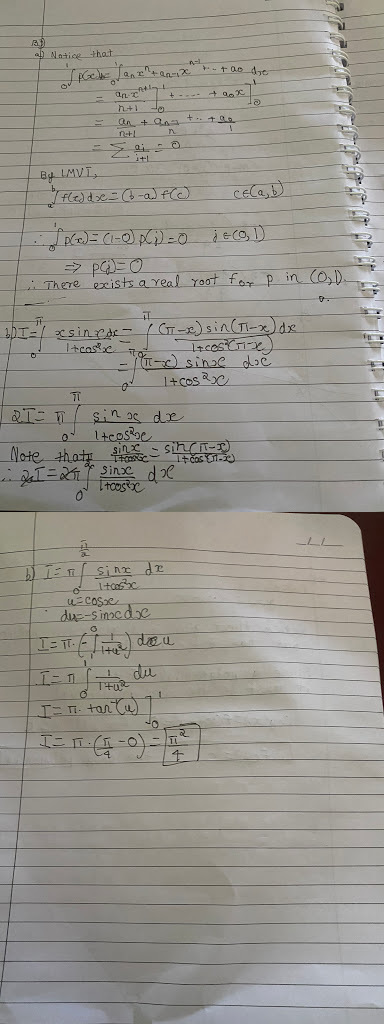 a) Notice that
∫₀¹ p(x) = ∫₀¹ aₙxⁿ + aₙ₋₁xⁿ⁻¹ + ... + a₀ dx
= aₙxⁿ⁺¹/n+1 ]₀¹ + ...... + a₀x]₀¹
= aₙ/n+1 + aₙ₋₁/n + ... + a₀/1
= ∑ aᵢ/i+1 = 0
By LMVT,
∫ₐᵇ f(x) dx = (b-a) f(c) c∈(a,b)
∴ ∫₀¹ p(x) = (1-0) p(j) = 0 j∈(0,1)
⇒ p(j) = 0
∴ There exists a real root for p in (0,1).
b) I = ∫₀^π x sin x dx/1+cos²x = ∫₀^π (π-x) sin(π-x) dx/1+cos²(π-x)
= ∫₀^π (π-x) sin x dx/1+cos²x
2I = π ∫₀^π sin x dx/1+cos²x
Note that sin x/1+cos²x = sin(π-x)/1+cos²(π-x)
∴ 2I = 2π ∫₀ sin x/1+cos²x dx
b) I = π ∫₀^(π/2) sin x/1+cos²x dx
u = cos x
du = -sin x dx
I = π · (-∫₁⁰ 1/1+u²) du
I = π ∫₀¹ 1/1+u² du
I = π · tan⁻¹(u) ]₀¹
I = π · (π/4 - 0) = π²/4